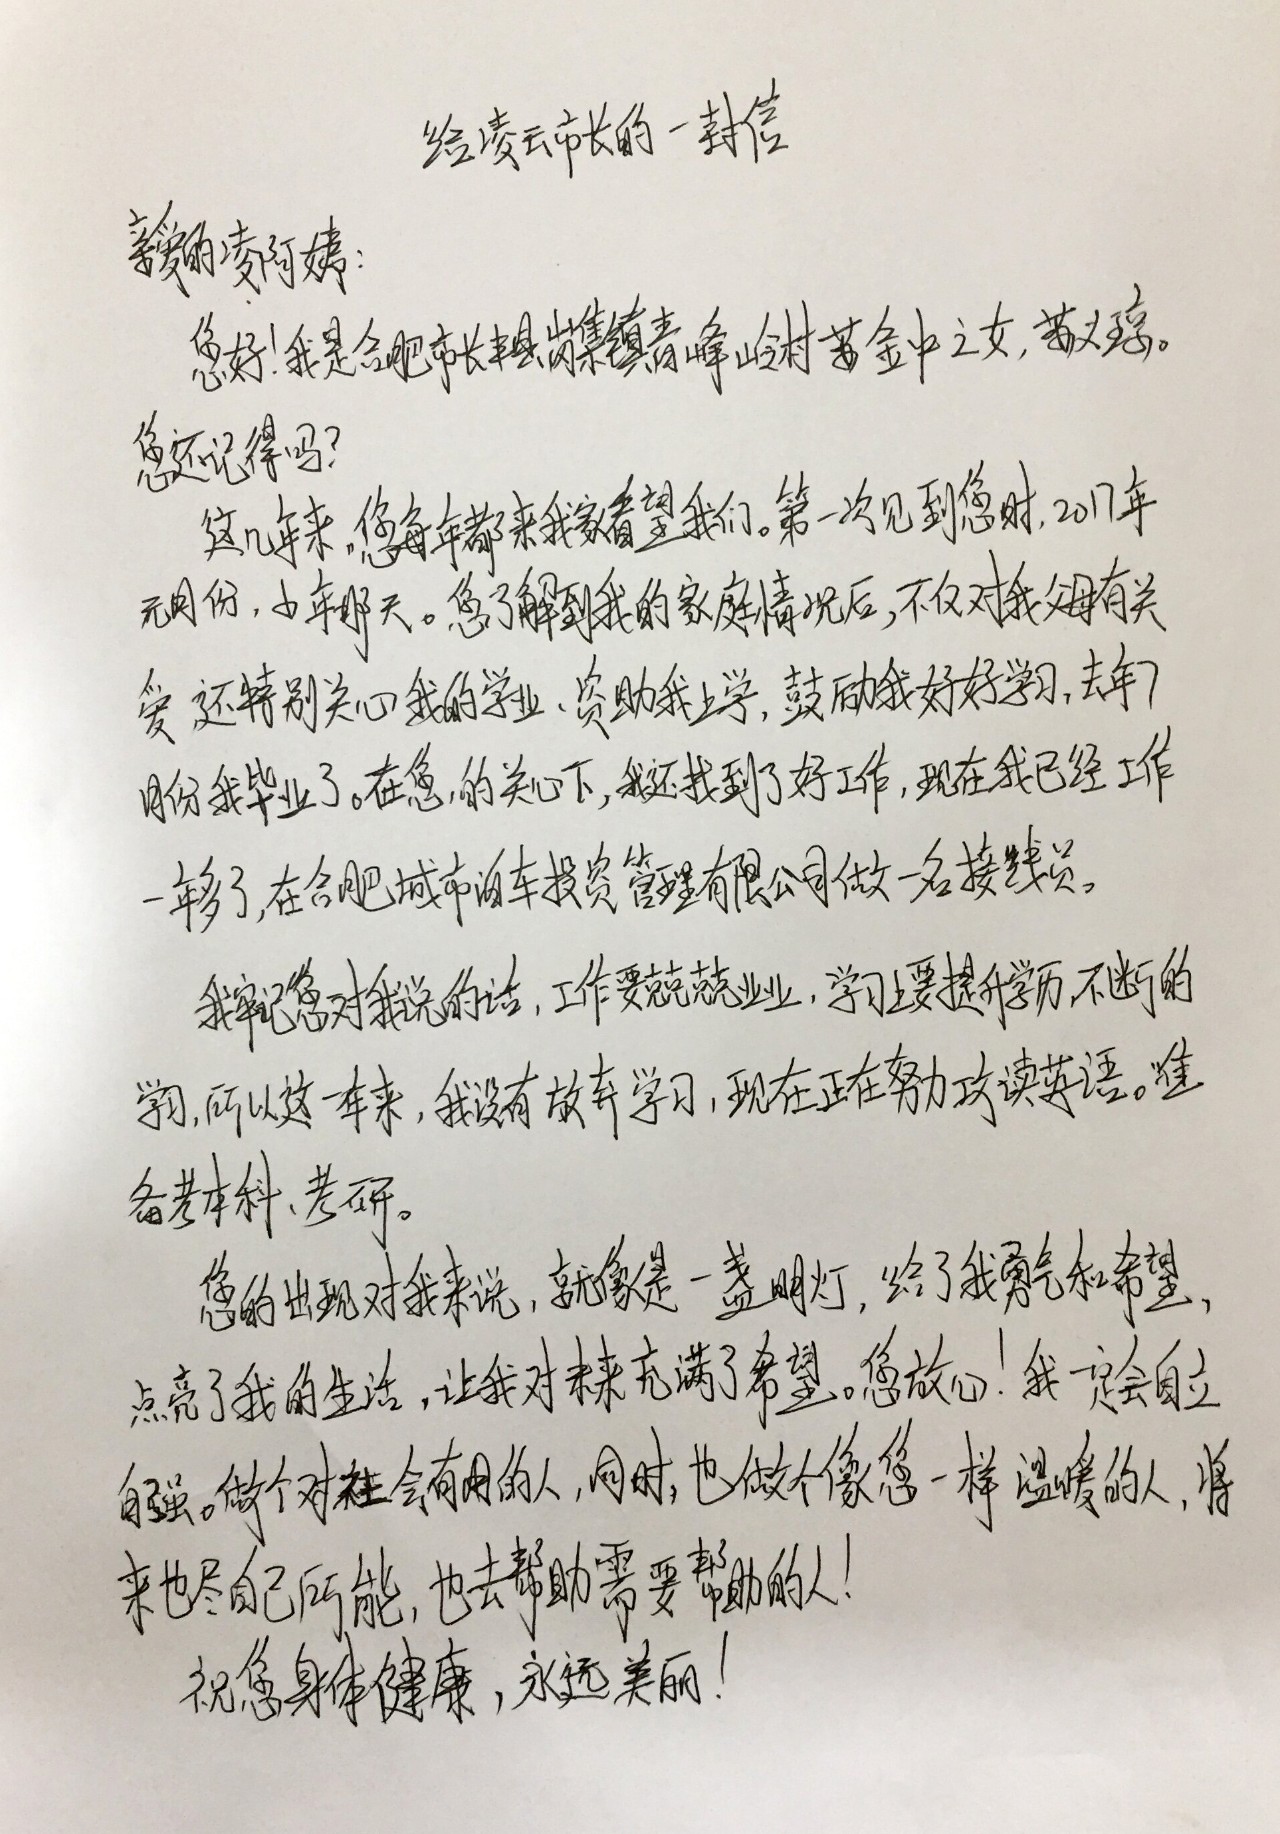 给凌云市长的一封信
亲爱的凌阿姨：
您好！我是合肥市长丰县岗集镇青峰岭村苏金中之女，苏义琼。
您还记得吗？
这几年来，您每年都来我家看望我们。第一次见到您时，2017年
元月份，小年那天。您了解到我的家庭情况后，不仅对我父母有关
爱 还特别关心我的学业、资助我上学，鼓励我好好学习，去年7
月份我毕业了。在您的关心下，我还找到了好工作，现在我已经工作
一年多了，在合肥城市泊车投资管理有限公司做一名接线员。
我牢记您对我说的话，工作要兢兢业业，学习上要提升学历，不断的
学习，所以这一年来，我没有放弃学习，现在正在努力攻读英语。准
备考本科、考研。
您的出现对我来说，就像是一盏明灯，给了我勇气和希望，
点亮了我的生活，让我对未来充满了希望。您放心！我一定会自立
自强。做个对社会有用的人，同时，也做个像您一样温暖的人，将
来也尽自己所能，也去帮助需要帮助的人！
祝您身体健康，永远美丽！